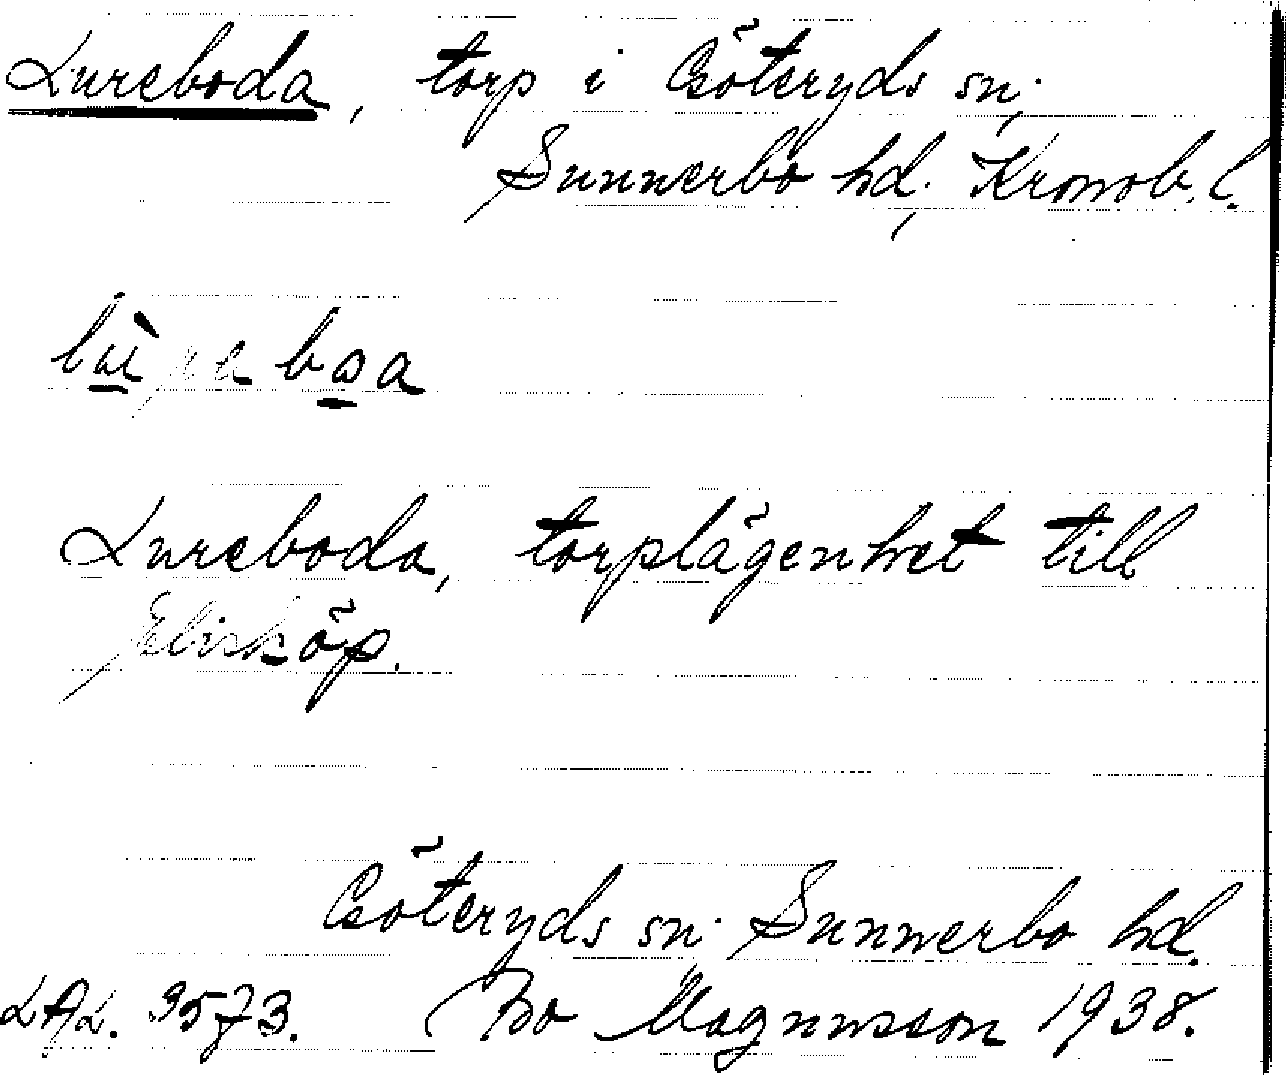 Lureboda, torp i Göteryds sn,
Sunnerbo hd, Kronob. l.
Lureboda, torplägenhet till
Elisköp.
Göteryds sn. Sunnerbo hd.
LAL. 3573. Bo Magnusson 1938.